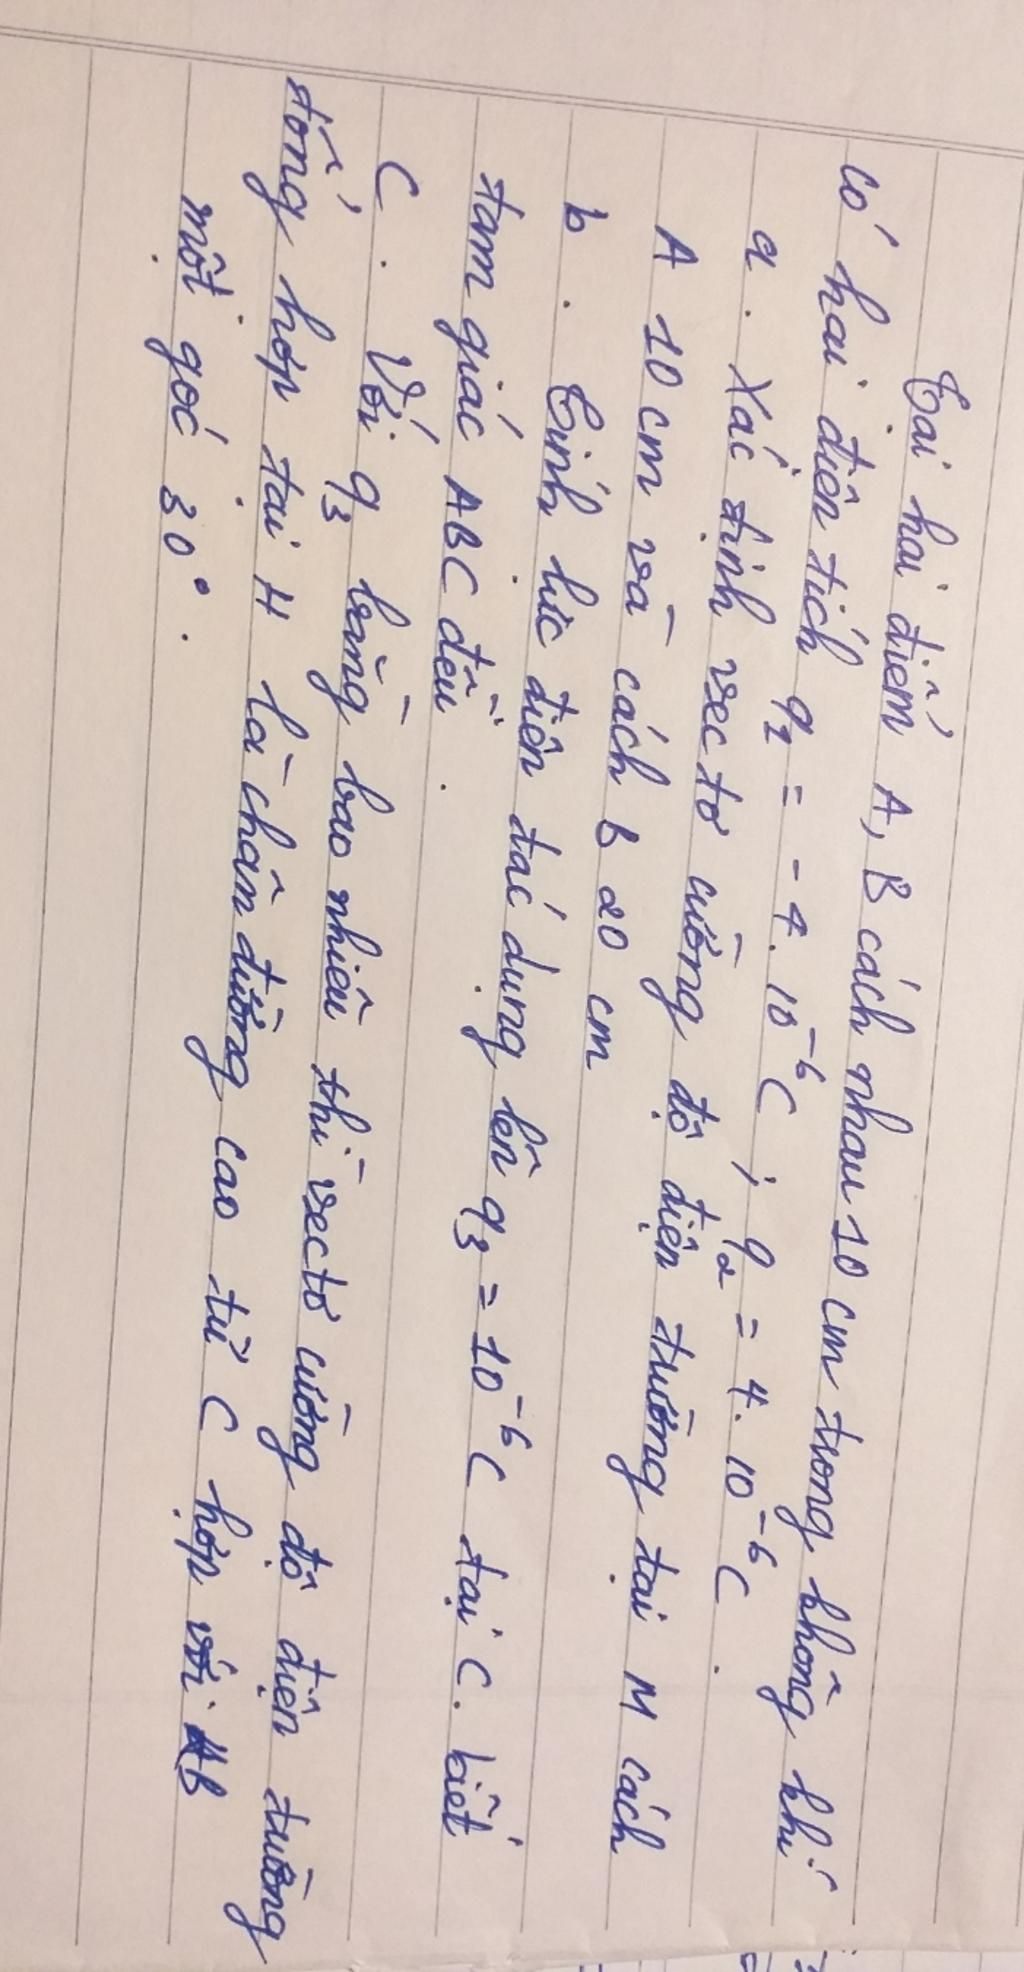 Tại hai điểm A, B cách nhau 10 cm trong không khí
có hai điện tích q1 = - 4. 10⁻⁶C ; q2 = 4. 10⁻⁶C.
a. Xác định vectơ cường độ điện trường tại M cách
A 10 cm và cách B 20 cm
b. Tính lực điện tác dụng lên q3 = 10⁻⁶C tại C. biết
tam giác ABC đều.
C. Với q3 bằng bao nhiêu thì vectơ cường độ điện trường
tổng hợp tại H là chân đường cao từ C hợp với AB
một góc 30°.